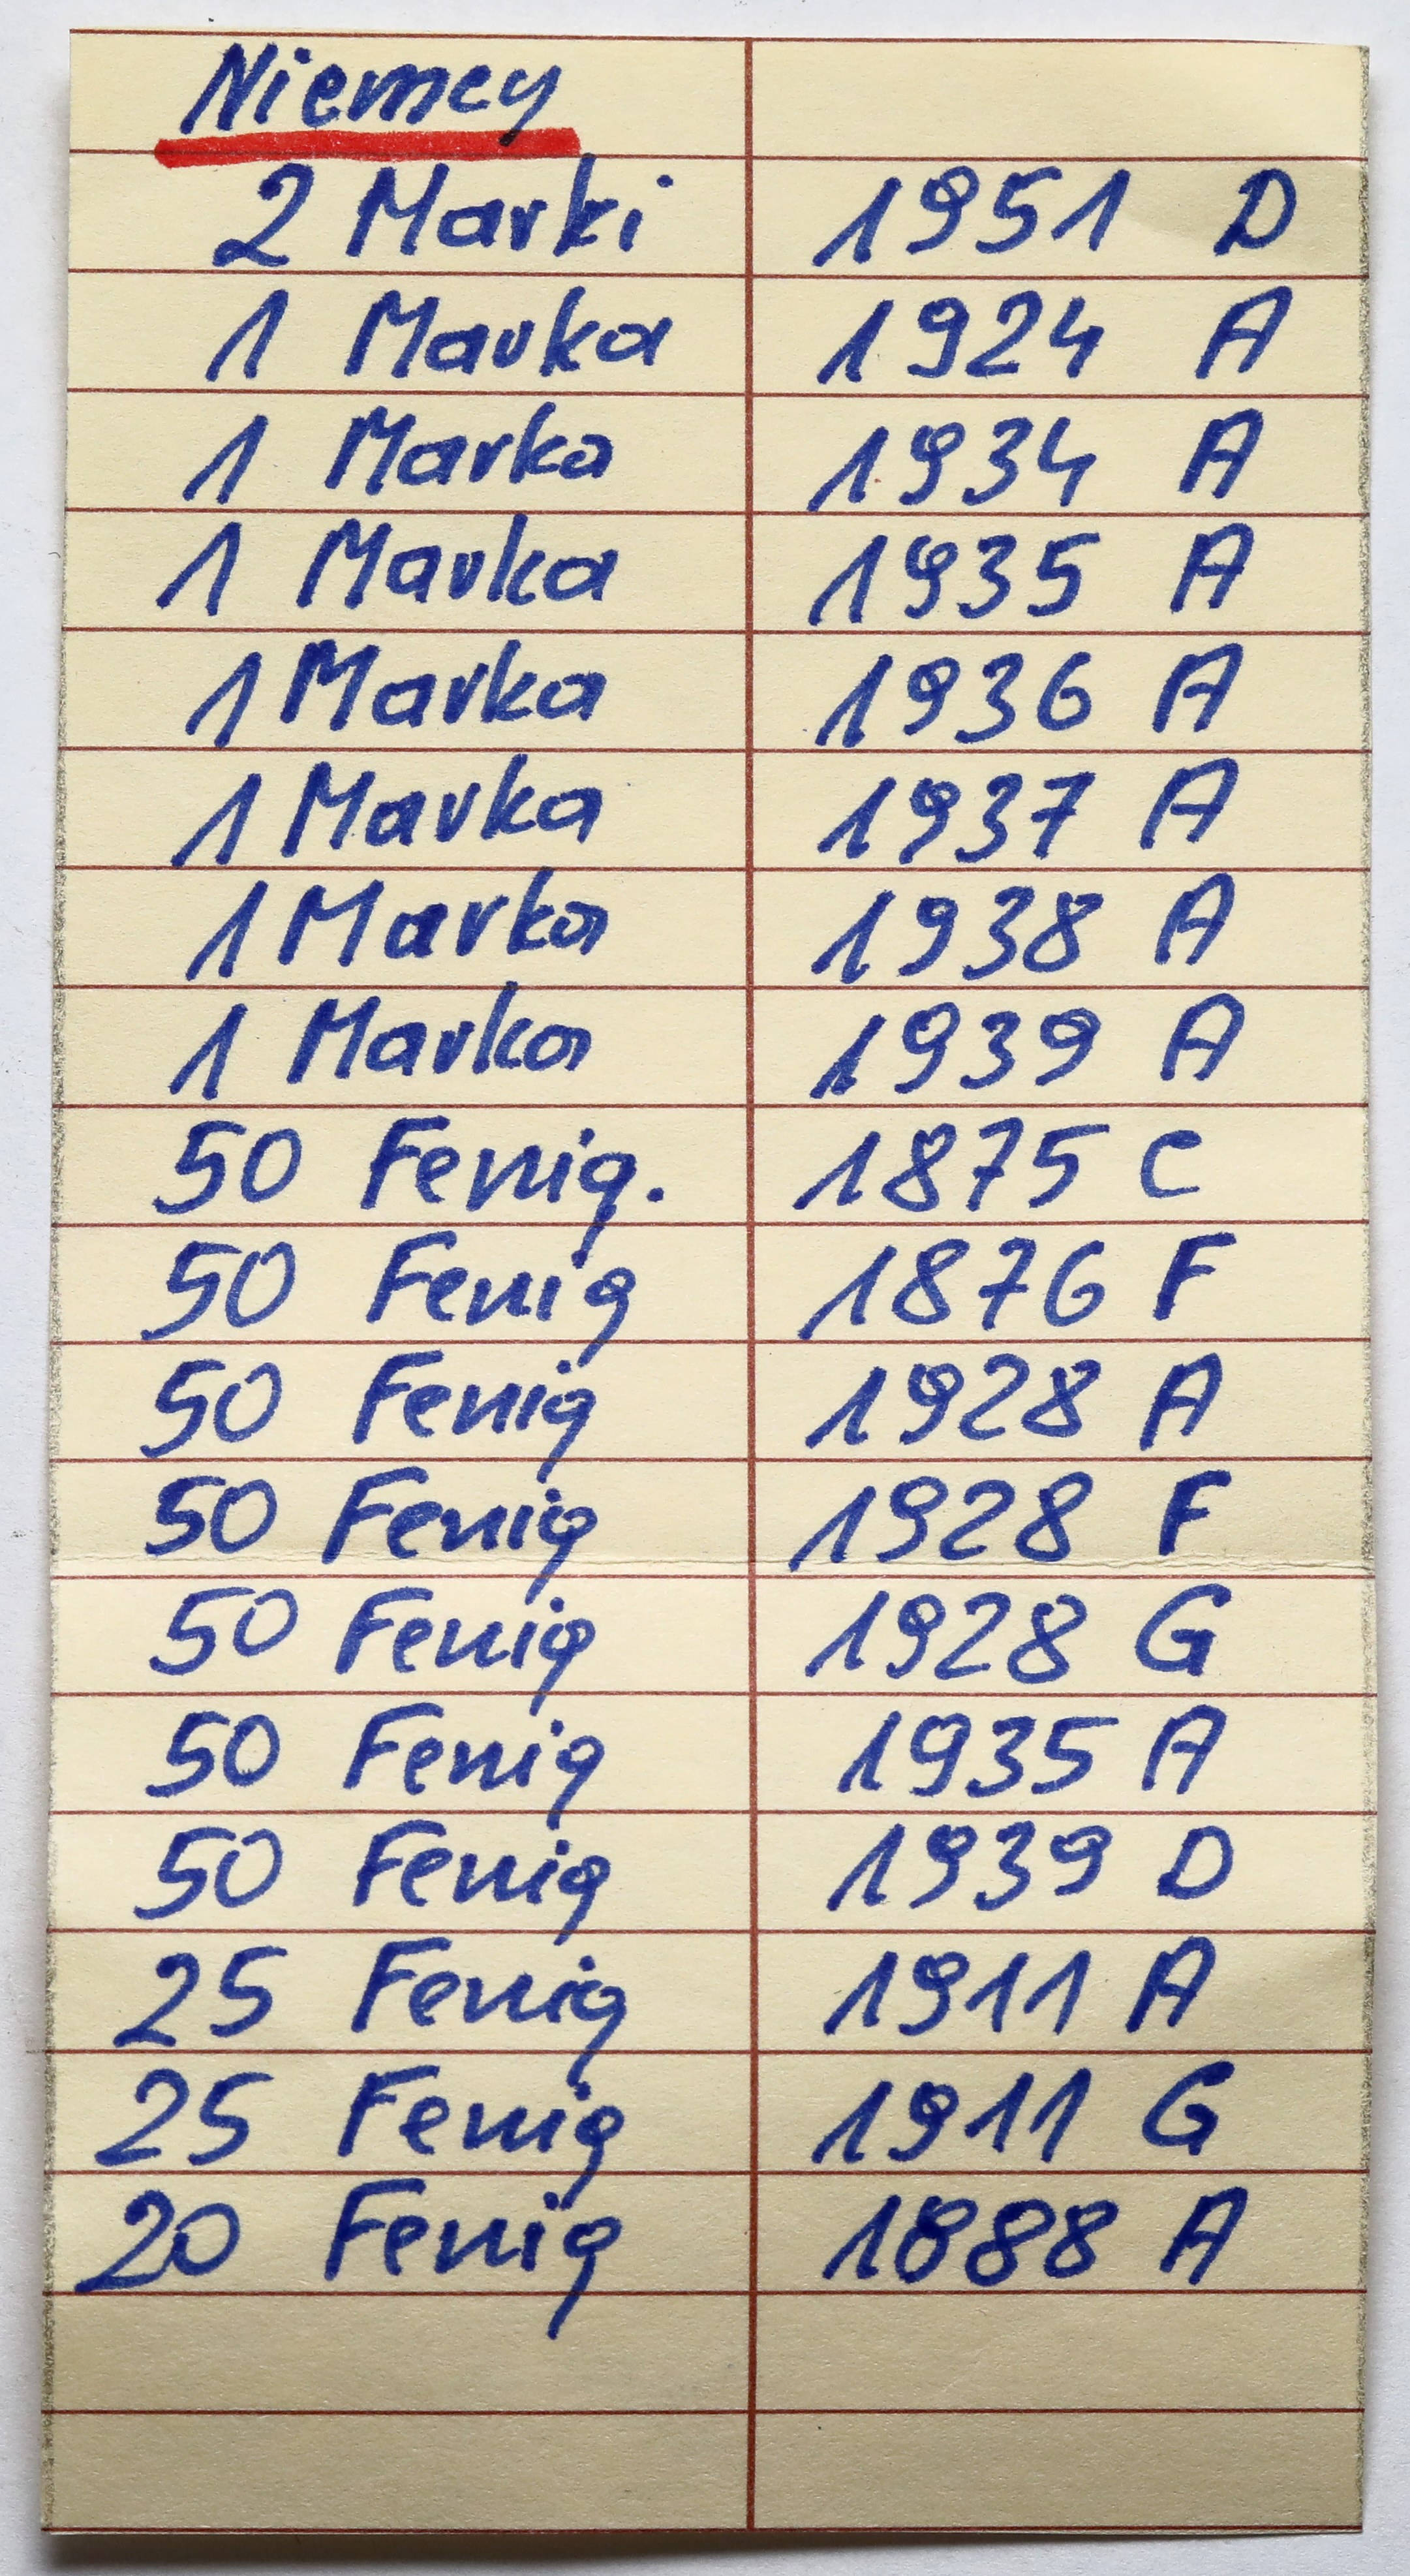 Niemcy
2 Marki 1951 D
1 Marka 1924 A
1 Marka 1934 A
1 Marka 1935 A
1 Marka 1936 A
1 Marka 1937 A
1 Marka 1938 A
1 Marka 1939 A
50 Fenig. 1875 C
50 Fenig 1876 F
50 Fenig 1928 A
50 Fenig 1928 F
50 Fenig 1928 G
50 Fenig 1935 A
50 Fenig 1939 D
25 Fenig 1911 A
25 Fenig 1911 G
20 Fenig 1888 A